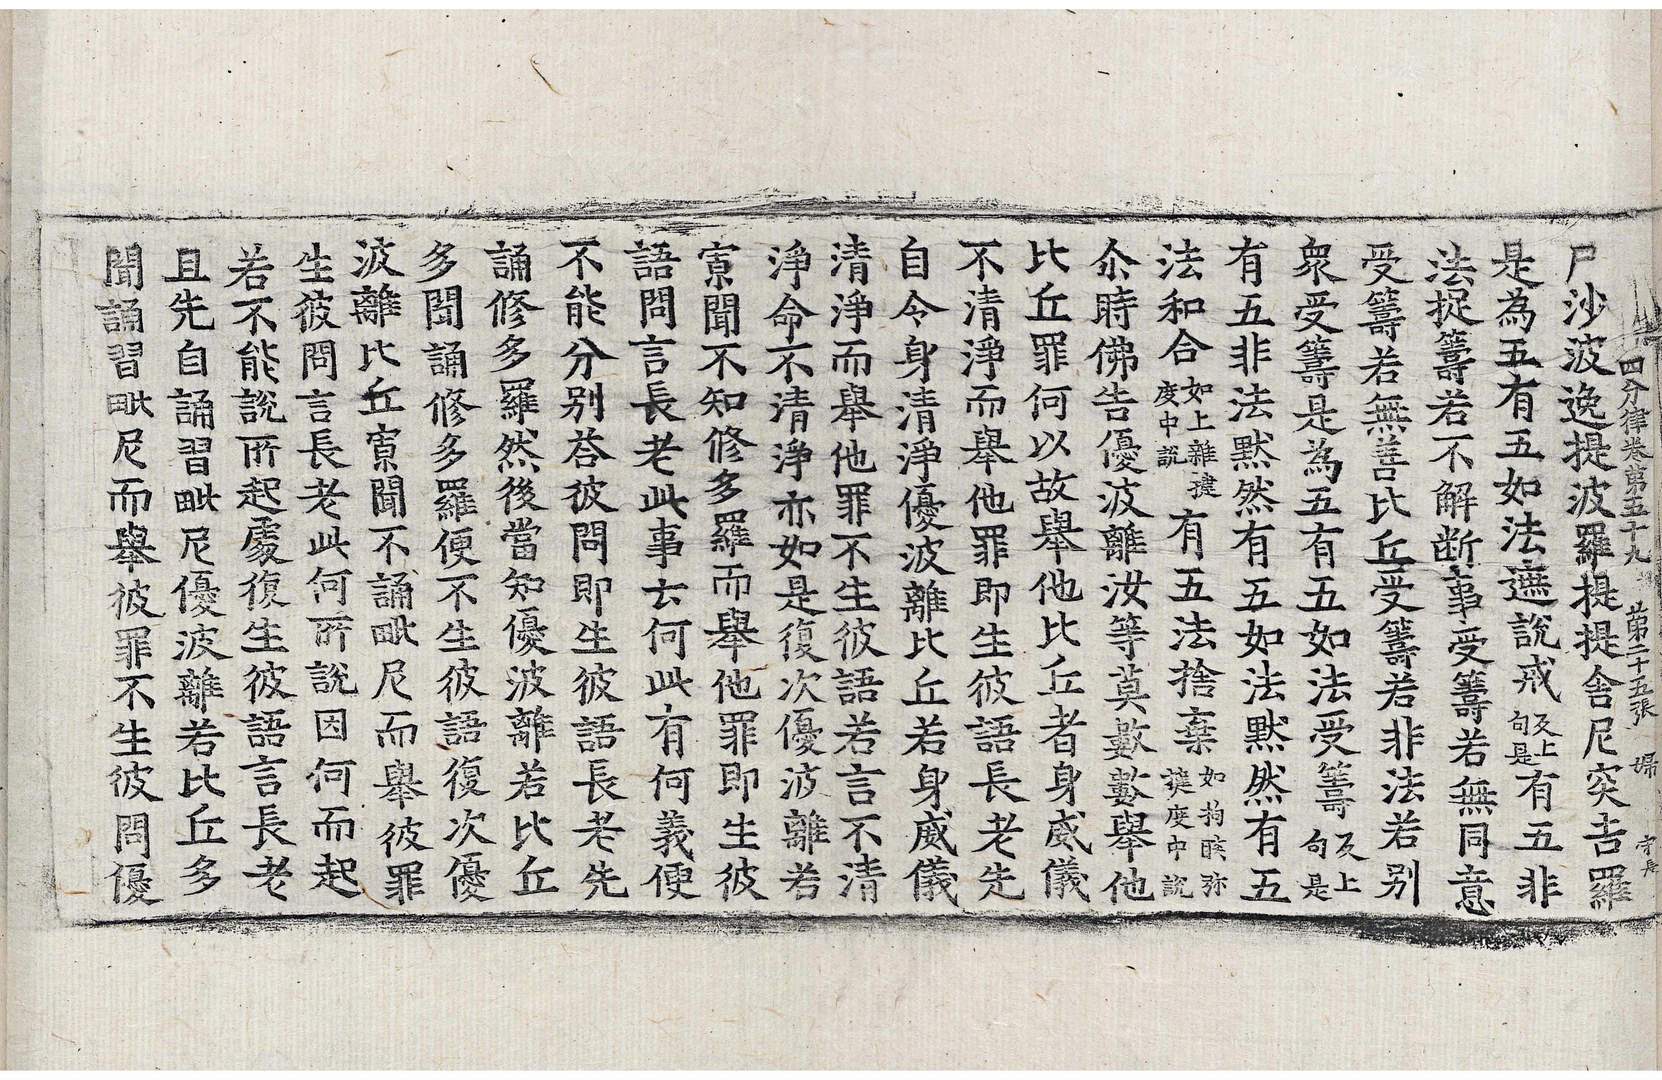 四分律卷第五十九 第二十五張 婦 守長
尸沙波逸提波羅提提舍尼突吉羅
是為五有五如法遮說戒反上句是有五非
法捉籌若不解断事受籌若無同意
受籌若無善比丘受籌若非法若别
衆受籌是為五有五如法受籌反上句是
有五非法黙然有五如法黙然有五
法和合如上雜揵度中說有五法捨棄如拘睒弥揵度中說
尒時佛告優波離汝等莫數數舉他
比丘罪何以故舉他比丘者身威儀
不清淨而舉他罪即生彼語長老先
自令身清淨優波離比丘若身威儀
清淨而舉他罪不生彼語若言不清
淨命不清淨亦如是復次優波離若
寡聞不知修多羅而舉他罪即生彼
語問言長老此事云何此有何義便
不能分别荅彼問即生彼語長老先
誦修多羅然後當知優波離若比丘
多聞誦修多羅便不生彼語復次優
波離比丘寡聞不誦毗尼而舉彼罪
生彼問言長老此何所說因何而起
若不能說所起處復生彼語言長老
且先自誦習毗尼優波離若比丘多
聞誦習毗尼而舉彼罪不生彼問優